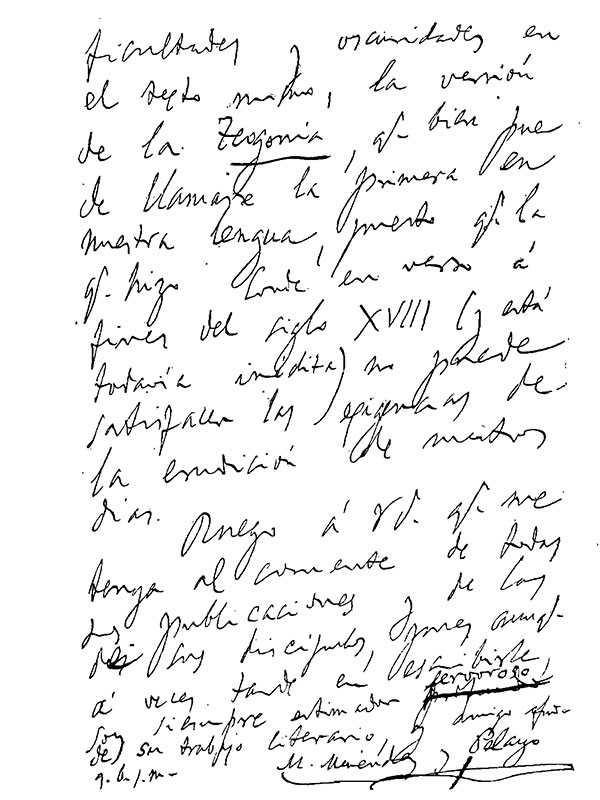 ficultades y oscuridades en
el texto mismo, la versión
de la Teogonía, qe. bien pue
de llamarse la primera en
nuestra lengua, puesto qe. la
qe. hizo Conde en verso á
fines del siglo XVIII (y está
todavía inédita) no puede
satisfacer las exigencias de
la erudición de nuestros
días.
Ruego á Vd. qe. me
tenga al corriente de todas
sus publicaciones y de las
de sus discípulos, pues aunqe.
á veces tarde en escribirle,
soy siempre estimador fervoroso
de su trabajo literario, y amigo afmo.
q. b. s. m.
M. Menéndez y Pelayo